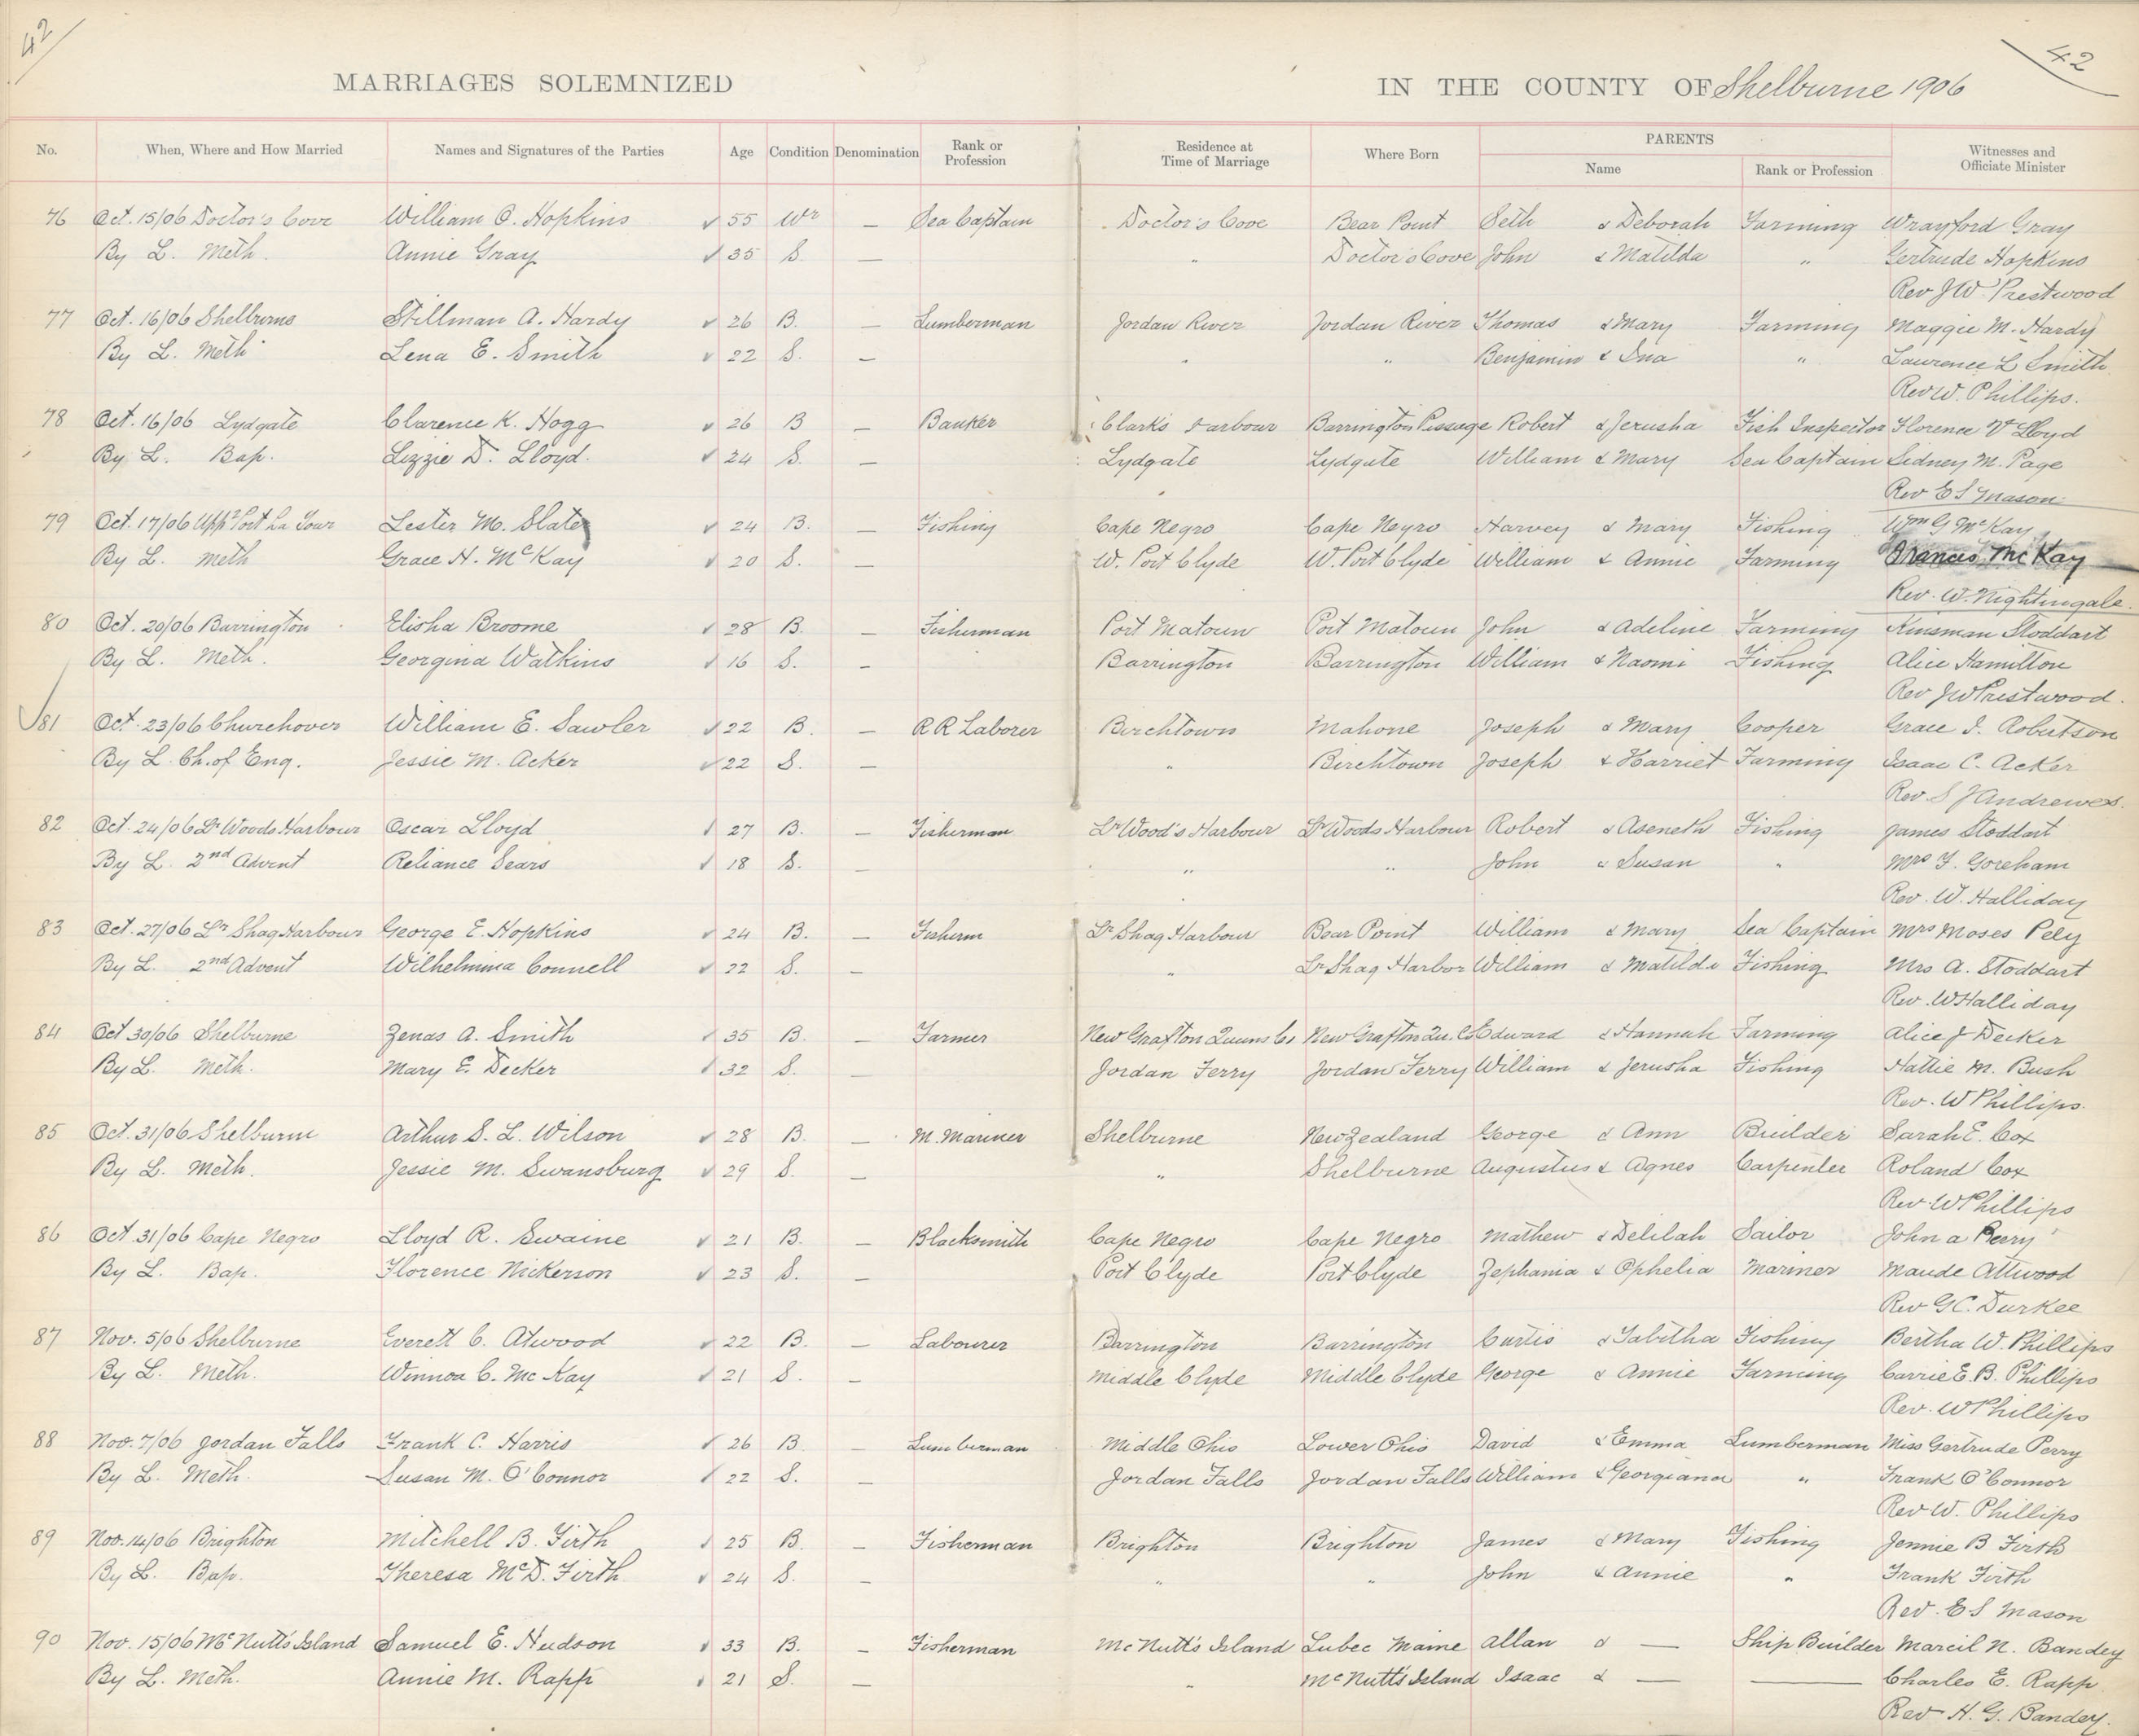 42
42
MARRIAGES SOLEMNIZED IN THE COUNTY OF Shelburne 1906
No. When, Where and How Married Names and Signatures of the Parties Age Condition Denomination Rank or Profession Residence at Time of Marriage Where Born PARENTS Name Rank or Profession Witnesses and Officiate Minister
76 Oct. 15/06 Doctor's Cove William O. Hopkins ✓ 55 Wr — Sea Captain Doctor's Cove Bear Point Seth & Deborah Farming Wrayford Gray
By L. Meth. Annie Gray ✓ 35 S. — " Doctor's Cove John & Matilda " Gertrude Hopkins
Rev J W Prestwood
77 Oct. 16/06 Shelburne Stillman A. Hardy ✓ 26 B. — Lumberman Jordan River Jordan River Thomas & Mary Farming Maggie M. Hardy
By L. Meth Lena E. Smith ✓ 22 S. — " " Benjamin & Ina " Laurence L Smith
Rev W. Phillips.
78 Oct. 16/06 Lydgate Clarence K. Hogg ✓ 26 B — Banker Clark's Harbour Barrington Passage Robert & Jerusha Fish Inspector Florence V Lloyd
By L. Bap. Lizzie D. Lloyd. ✓ 24 S. — Lydgate Lydgate William & Mary Sea Captain Sidney M. Page
Rev E S Mason
79 Oct. 17/06 Uppr Port La Tour Lester M. Slater ✓ 24 B. — Fishing Cape Negro Cape Negro Harvey & Mary Fishing Wm G McKay
By L. Meth Grace H. McKay ✓ 20 S. — W. Port Clyde W. Port Clyde William & Annie Farming Frances McKay
Rev. W. Nightingale.
80 Oct. 20/06 Barrington Elisha Broome ✓ 28 B. — Fisherman Port Matoun Port Matoun John & Adeline Farming Kinsman Stoddart
By L. Meth. Georgina Watkins ✓ 16 S. — Barrington Barrington William & Naomi Fishing Alice Hamilton
Rev J W Prestwood.
81 Oct. 23/06 Churchover William E. Sawler ✓ 22 B. — R R Laborer Birchtown Mahone Joseph & Mary Cooper Grace I. Robertson
By L. Ch. of Eng. Jessie M. Acker ✓ 22 S. — " Birchtown Joseph & Harriet Farming Isaac C. Acker
Rev. S J Andrewes.
82 Oct. 24/06 Lr Woods Harbour Oscar Lloyd ✓ 27 B. — Fisherman Lr Wood's Harbour Lr Woods Harbour Robert & Aseneth Fishing James Stoddart
By L. 2nd Advent Reliance Sears ✓ 18 S. — " " John & Susan " Mrs F. Goreham
Rev. W. Halliday
83 Oct. 27/06 Lr Shag Harbour George E. Hopkins ✓ 24 B. — Fisherm Lr Shag Harbour Bear Point William & Mary Sea Captain Mrs Moses Pely
By L. 2nd Advent Wilhelmina Connell ✓ 22 S. — " Lr Shag Harbor William & Matilda Fishing Mrs A. Stoddart
Rev. W Halliday
84 Oct 30/06 Shelburne Zenas A. Smith ✓ 35 B. — Farmer New Grafton Queens Co New Grafton Qu. Co Edward & Hannah Farming Alice J Decker
By L. Meth. Mary E. Decker ✓ 32 S. — Jordan Ferry Jordan Ferry William & Jerusha Fishing Hattie M. Bush
Rev. W Phillips.
85 Oct. 31/06 Shelburne Arthur S. L. Wilson ✓ 28 B. — M. Mariner Shelburne New Zealand George & Ann Builder Sarah E. Cox
By L. Meth. Jessie M. Swansburg ✓ 29 S. — " Shelburne Augustus & Agnes Carpenter Roland Cox
Rev. W Phillips
86 Oct. 31/06 Cape Negro Lloyd R. Swaine ✓ 21 B. — Blacksmith Cape Negro Cape Negro Mathew & Delilah Sailor John A Perry
By L. Bap. Florence Nickerson ✓ 23 S. — Port Clyde Port Clyde Zephania & Ophelia Mariner Maude Attwood
Rev G C. Durkee
87 Nov. 5/06 Shelburne Everett C. Atwood ✓ 22 B. — Labourer Barrington Barrington Curtis & Tabitha Fishing Bertha W. Phillips
By L. Meth. Winnoa C. Mc Kay ✓ 21 S. — Middle Clyde Middle Clyde George & Annie Farming Carrie E. B. Phillips
Rev. W Phillips
88 Nov. 7/06 Jordan Falls Frank C. Harris ✓ 26 B. — Lumberman Middle Ohio Lower Ohio David & Emma Lumberman Miss Gertrude Perry
By L. Meth. Susan M. O'Connor ✓ 22 S. — Jordan Falls Jordan Falls William & Georgiana " Frank O'Connor
Rev W. Phillips
89 Nov. 14/06 Brighton Mitchell B. Firth ✓ 25 B. — Fisherman Brighton Brighton James & Mary Fishing Jennie B Firth
By L. Bap. Theresa McD. Firth ✓ 24 S. — " " John & Annie " Frank Firth
Rev. E S Mason
90 Nov. 15/06 McNutt's Island Samuel E. Hudson ✓ 33 B. — Fisherman McNutt's Island Lubec Maine Allan & — Ship Builder Marcil N. Bandey
By L. Meth. Annie M. Rapp ✓ 21 S. — " McNutt's Island Isaac & — — Charles E. Rapp
Rev H. G. Bandey.